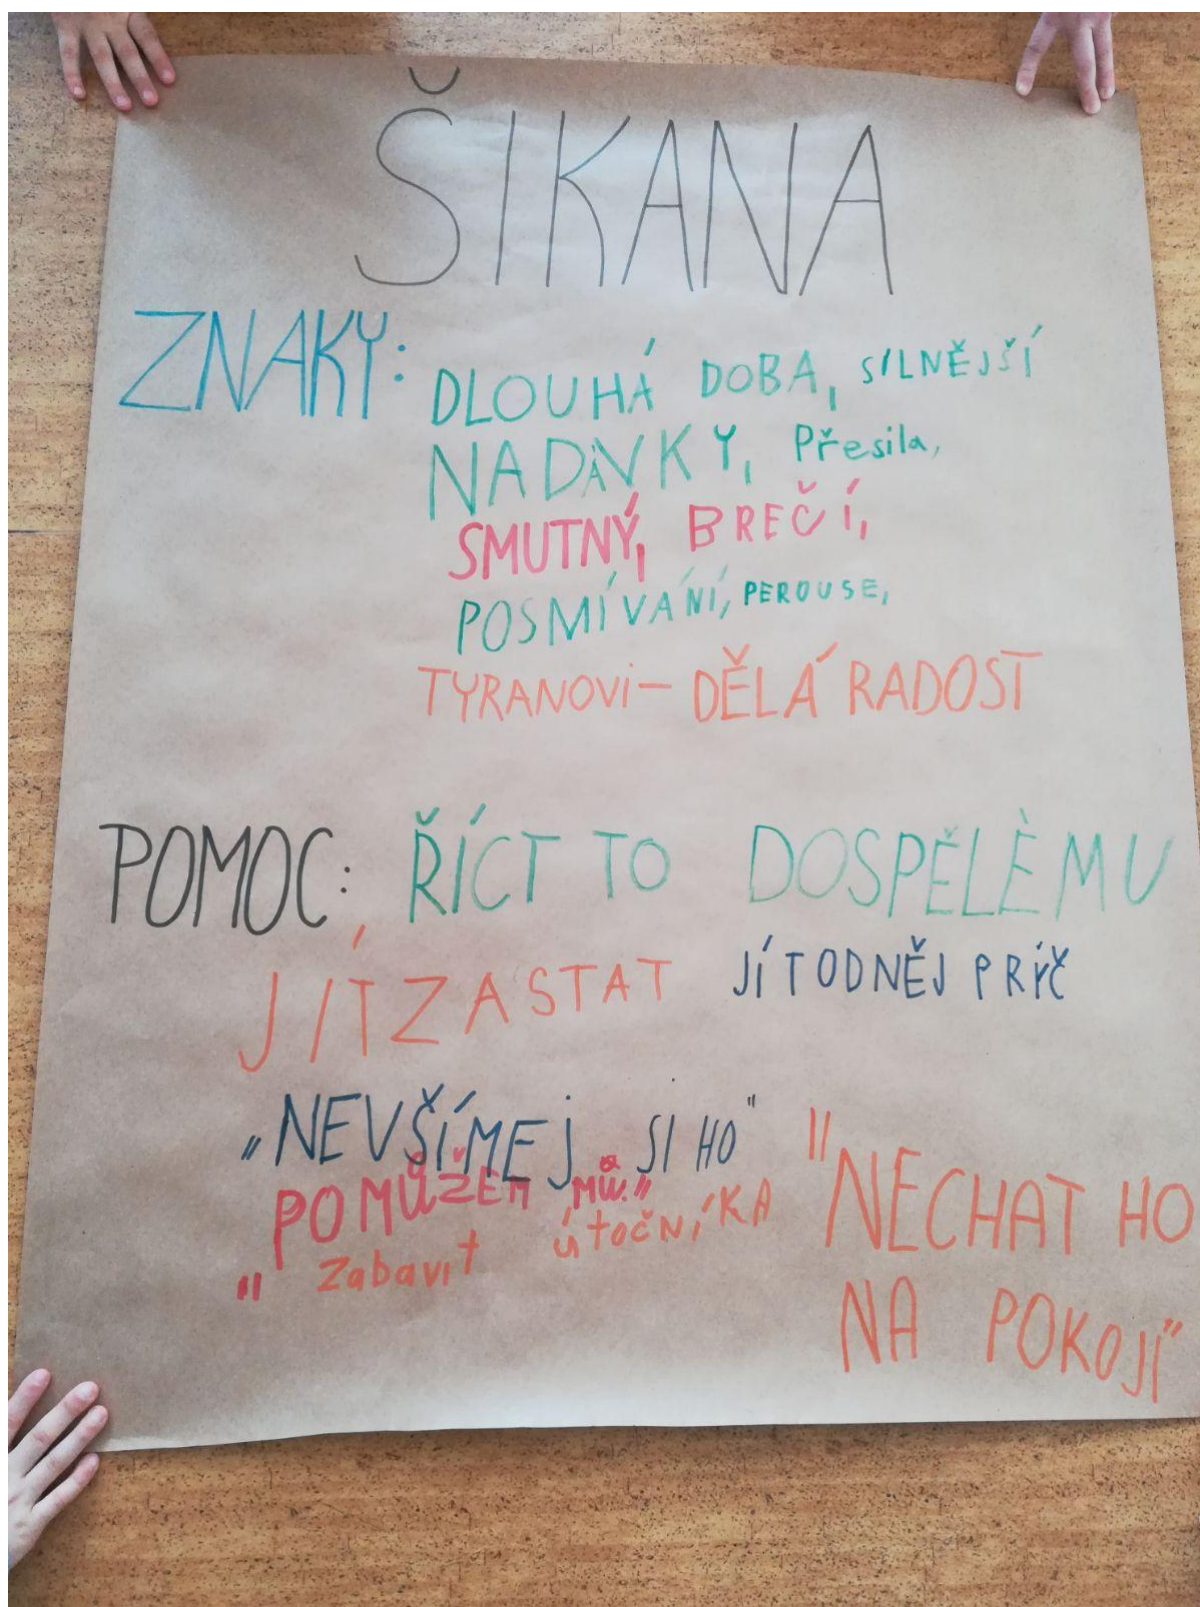 ŠIKANA
ZNAKY: DLOUHÁ DOBA, SILNĚJŠÍ
NADÁVKY, Přesila,
SMUTNÝ, BREČÍ,
POSMÍVÁNÍ, PEROUSE,
TYRANOVI – DĚLÁ RADOST
POMOC: ŘÍCT TO DOSPĚLÈMU
JÍT ZASTAT JÍTODNĚJ PRÝČ
„NEVŠÍMEJ SI HO"
„POMŮŽEM MŮ."
Zabavit útočníKA
"NECHAT HO
NA POKOJÍ"